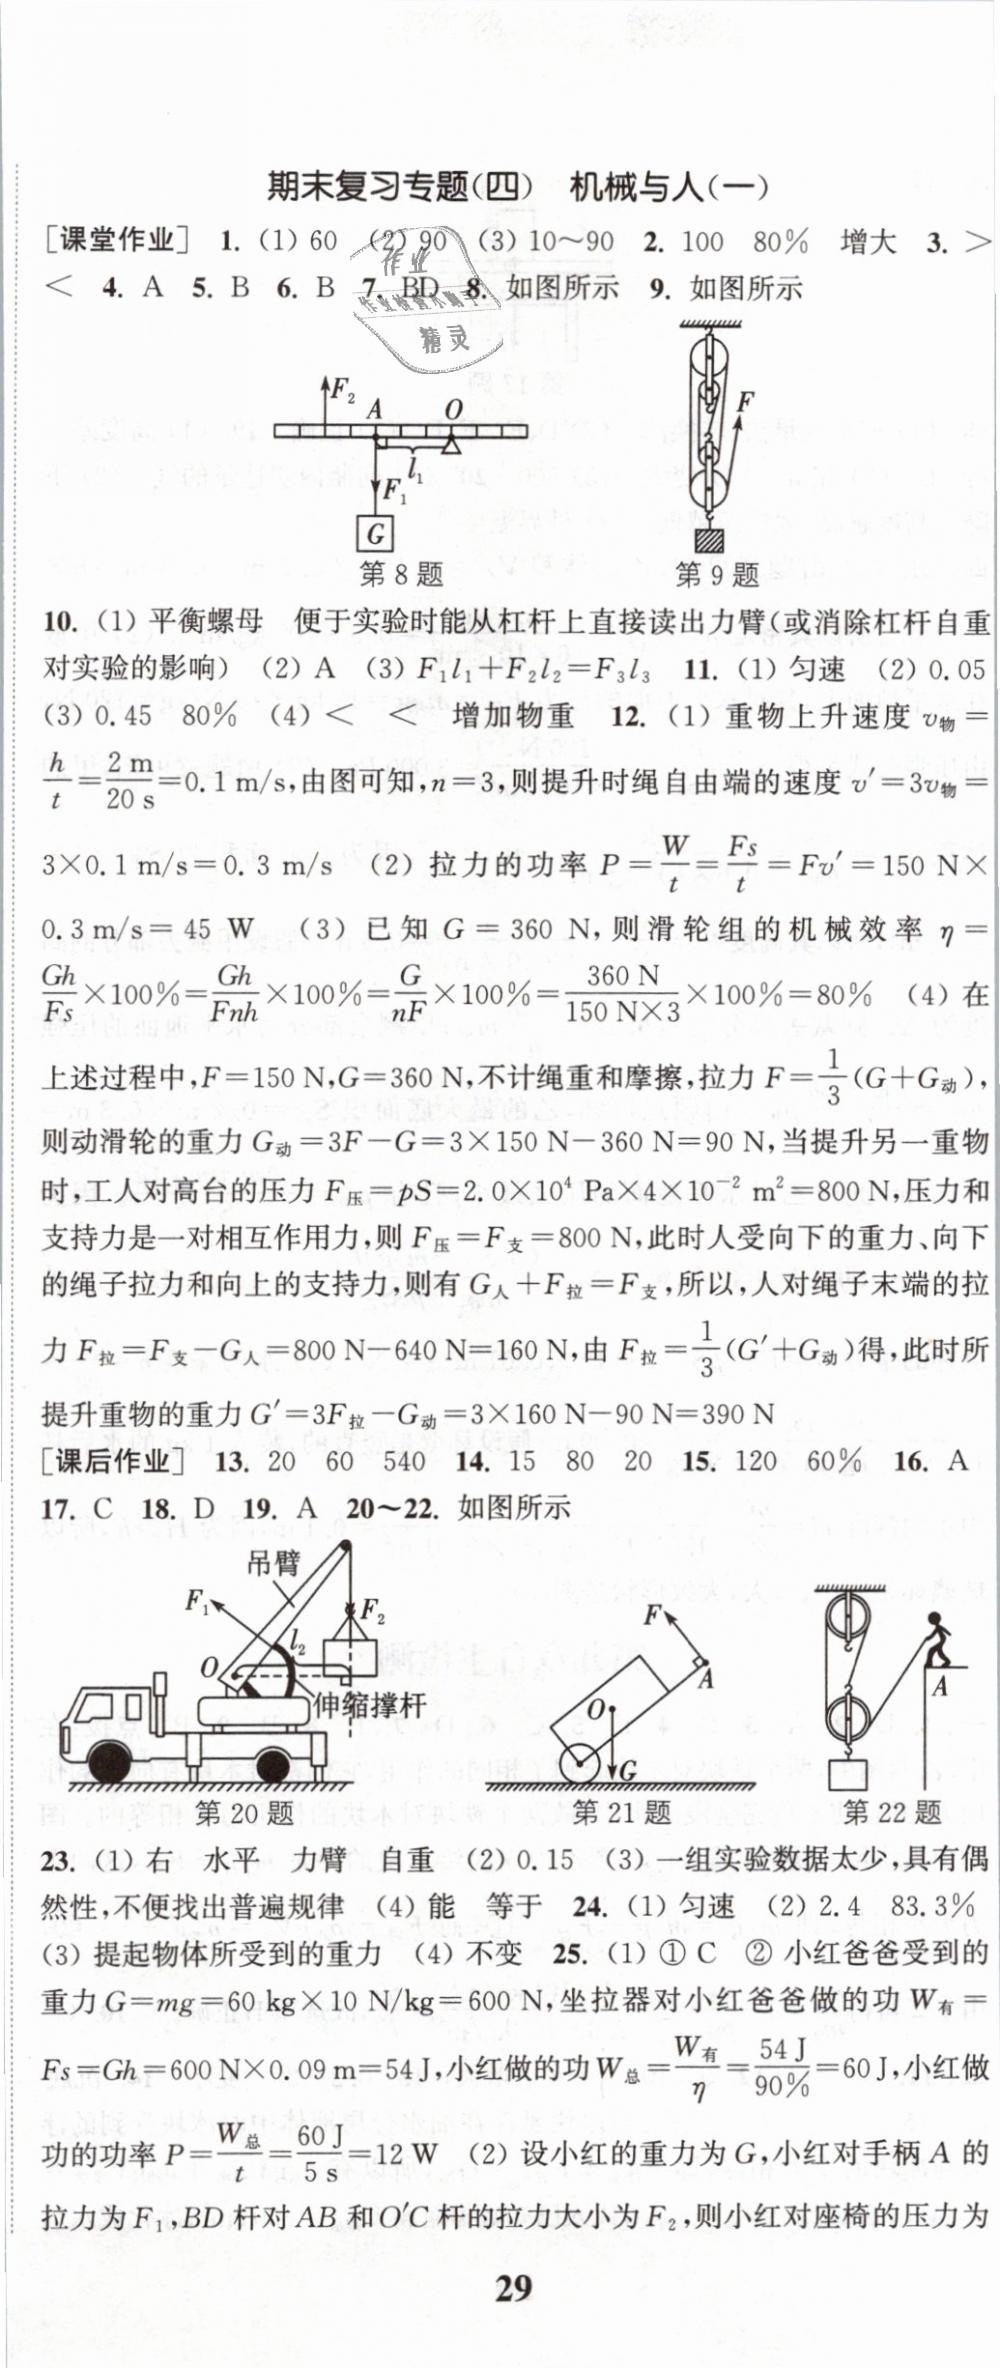 期末复习专题(四) 机械与人(一)
[课堂作业] 1. (1) 60 (2) 90 (3) 10～90 2. 100 80% 增大 3. >
< 4. A 5. B 6. B 7. BD 8. 如图所示 9. 如图所示
作业
精灵
F₂
A
O
l₁
F₁
G
第8题
F
第9题
10. (1) 平衡螺母 便于实验时能从杠杆上直接读出力臂(或消除杠杆自重
对实验的影响) (2) A (3) F₁l₁+F₂l₂=F₃l₃ 11. (1) 匀速 (2) 0.05
(3) 0.45 80% (4) < < 增加物重 12. (1) 重物上升速度 v物=
h/t=2 m/20 s=0.1 m/s,由图可知,n=3,则提升时绳自由端的速度 v′=3v物=
3×0.1 m/s=0.3 m/s (2) 拉力的功率 P=W/t=Fs/t=Fv′=150 N×
0.3 m/s=45 W (3) 已知 G=360 N,则滑轮组的机械效率 η=
Gh/Fs×100%=Gh/Fnh×100%=G/nF×100%=360 N/150 N×3×100%=80% (4) 在
上述过程中,F=150 N,G=360 N,不计绳重和摩擦,拉力 F=1/3(G+G动),
则动滑轮的重力 G动=3F-G=3×150 N-360 N=90 N,当提升另一重物
时,工人对高台的压力 F压=pS=2.0×10⁴ Pa×4×10⁻² m²=800 N,压力和
支持力是一对相互作用力,则 F压=F支=800 N,此时人受向下的重力、向下
的绳子拉力和向上的支持力,则有 G人+F拉=F支,所以,人对绳子末端的拉
力 F拉=F支-G人=800 N-640 N=160 N,由 F拉=1/3(G′+G动)得,此时所
提升重物的重力 G′=3F拉-G动=3×160 N-90 N=390 N
[课后作业] 13. 20 60 540 14. 15 80 20 15. 120 60% 16. A
17. C 18. D 19. A 20～22. 如图所示
吊臂
F₁
F₂
l₂
O
伸缩撑杆
第20题
F
A
O
G
第21题
A
第22题
23. (1) 右 水平 力臂 自重 (2) 0.15 (3) 一组实验数据太少,具有偶
然性,不便找出普遍规律 (4) 能 等于 24. (1) 匀速 (2) 2.4 83.3%
(3) 提起物体所受到的重力 (4) 不变 25. (1) ① C ② 小红爸爸受到的
重力 G=mg=60 kg×10 N/kg=600 N,坐拉器对小红爸爸做的功 W有=
Fs=Gh=600 N×0.09 m=54 J,小红做的功 W总=W有/η=54 J/90%=60 J,小红做
功的功率 P=W总/t=60 J/5 s=12 W (2) 设小红的重力为 G,小红对手柄 A 的
拉力为 F₁,BD 杆对 AB 和 O′C 杆的拉力大小为 F₂,则小红对座椅的压力为
29